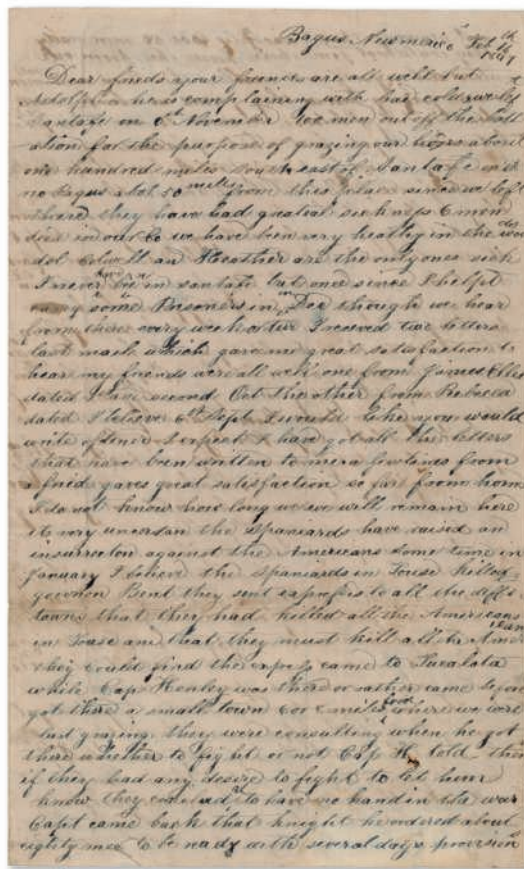 Bagus Newmexico Feb 16th 1847
Dear frieds your friences are all well but
Adolph he is complaining with bad cold we left
Santafe on 6th November 100 men out off the batt
ation for the purpose of grazing our horses about
one hundred miles south east of Santa fe
no Bagus abot 50 miles from this place since we left
there they have had greateal sickness 6 men
died in our Co we have been very healthy in the
Colwell an Heather are the only ones sick
I never have been in santafe but one since I helpt
carry some Prisoners in in Dec though we hear
from there every week or two I receved two letters
last mail which gave me great satisfaction to
hear my friends were all well one from James Ellis
dated second Oct the other from Rebecca
dated I believe 6th Sept I would like you would
write oftener I expect I have got all the letters
that have been written to me a few lines from
a fried gaves great satisfaction so far from home
I do not know how long we will remain here
it very uncertan the Spaniards have raised an
insurrecton against the Americans some time in
January I believe the Spaniards in Touse killed
govenor Bent they sent expresses to all the diffr
towns that they had killed all the Americans
in Touse and that they must kill all the Ame
they could find the express came to
while Cap Henley was there or rather came before
got there a small town 5 or 6 miles from where we were
last grazing they were consulting when he got
there whether to fight or not Cap H told them
if they had any desire to fight to let him
know they concluded to have no hand in the war
Capt came back that knight he ordered about
eighty men to be ready with several days provision